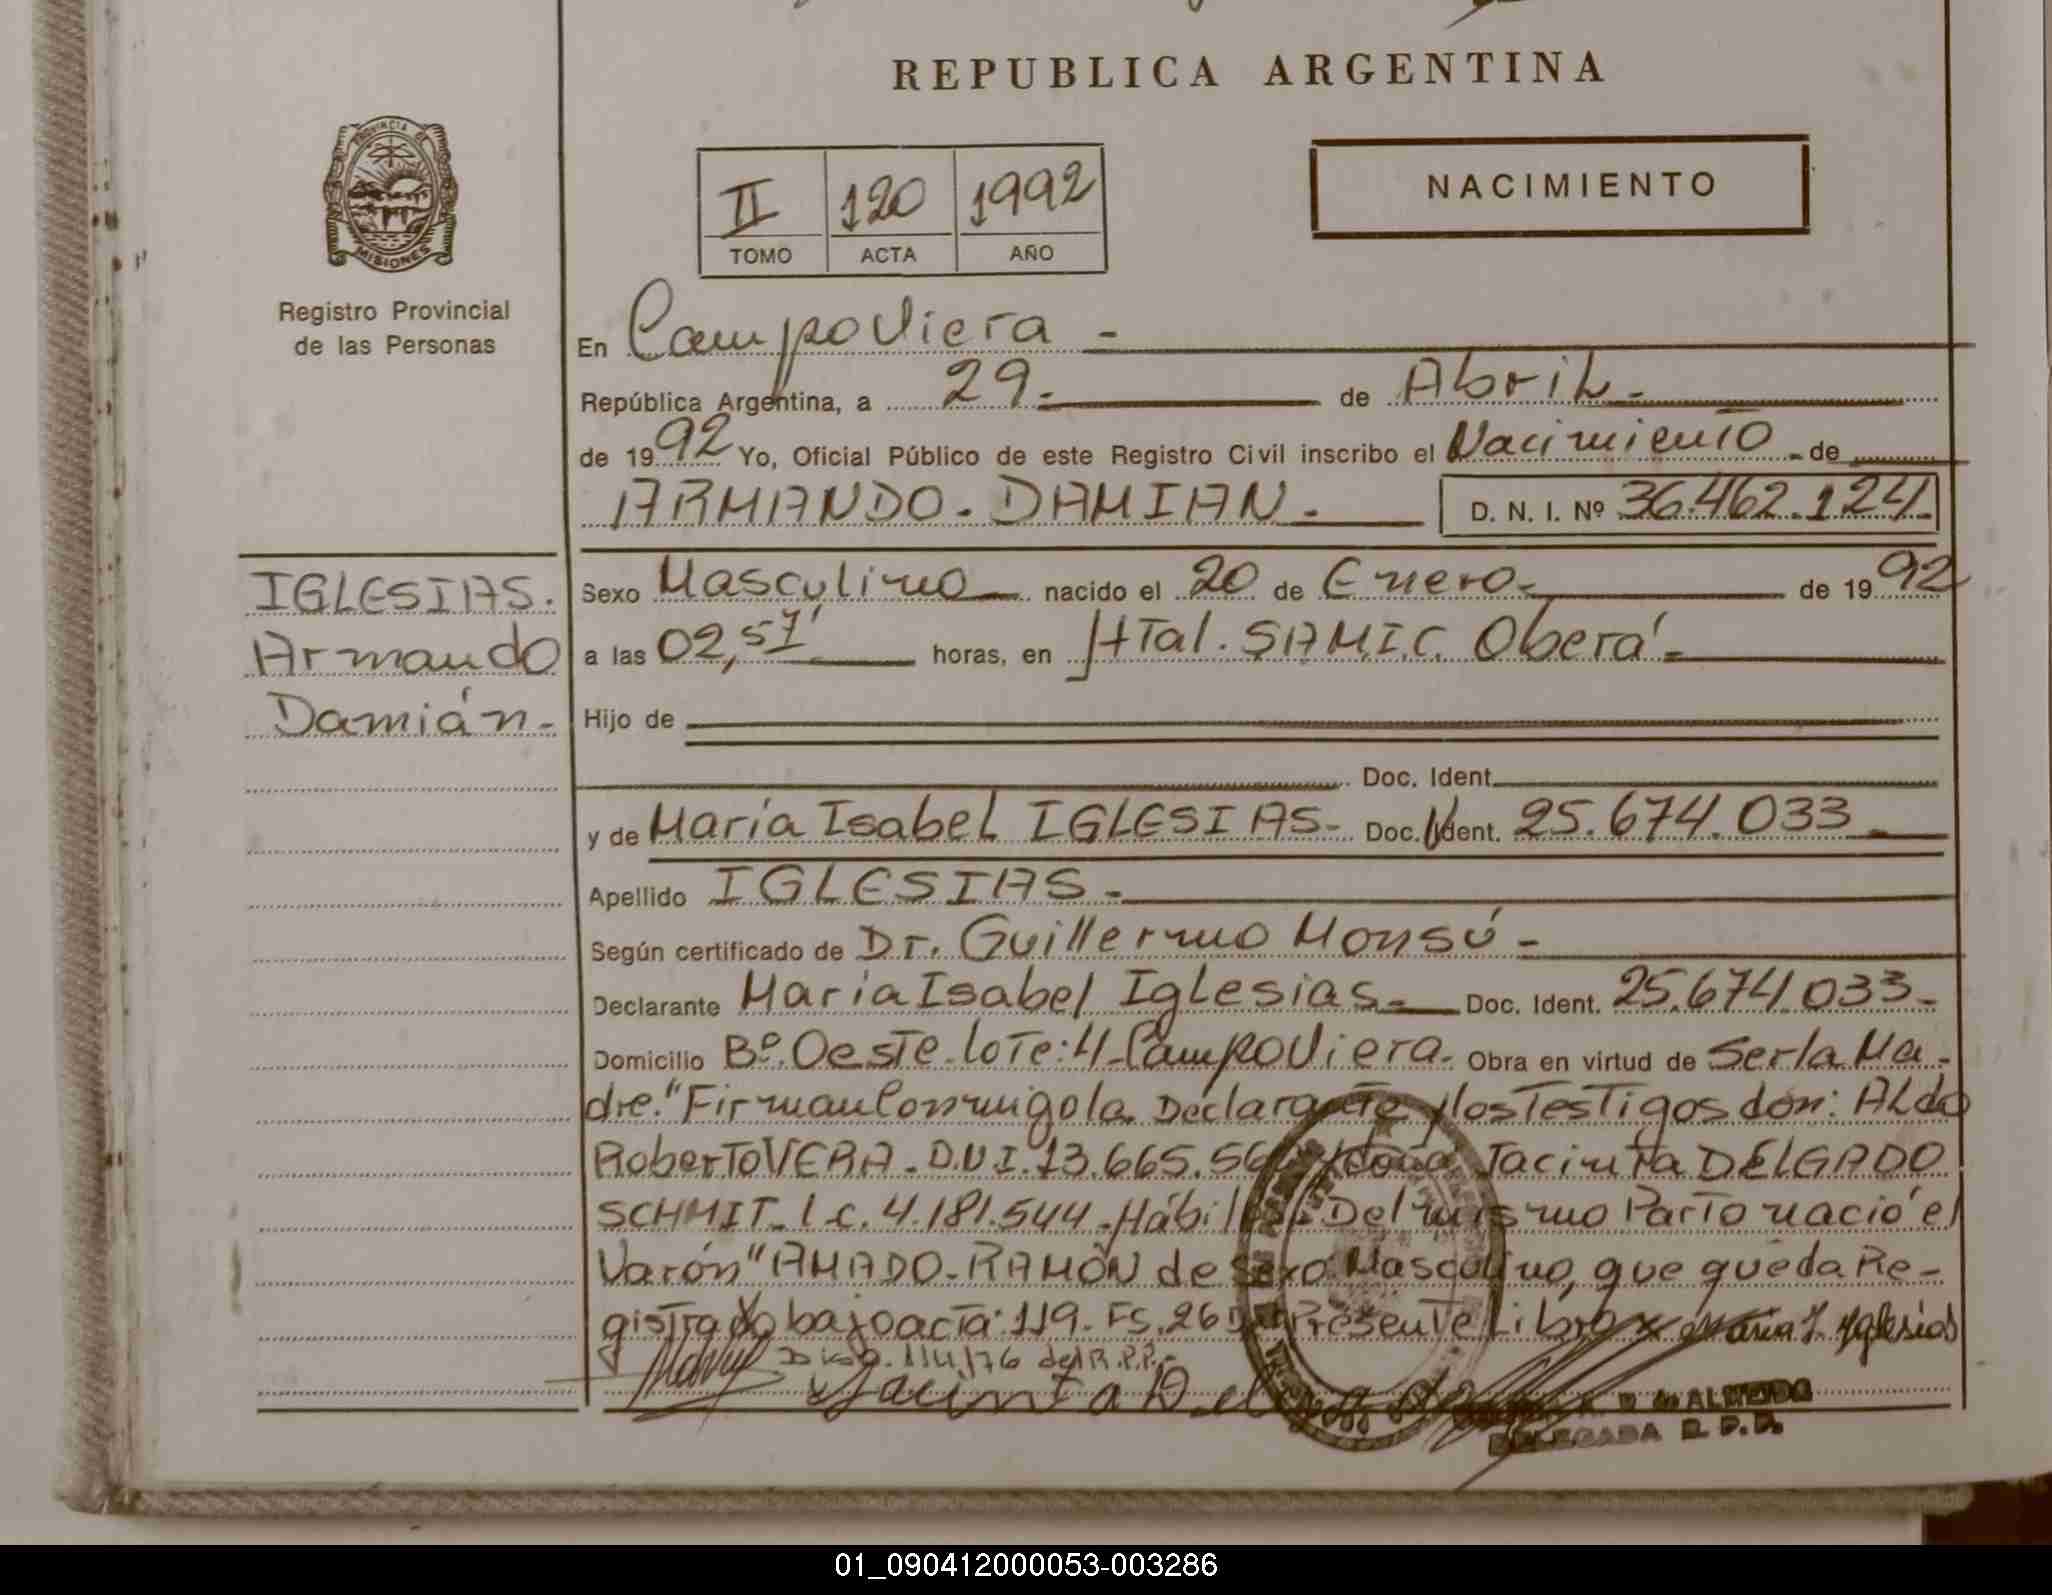 REPUBLICA ARGENTINA
PROVINCIA DE
MISIONES
Registro Provincial
de las Personas
II 120 1992
TOMO ACTA AÑO
NACIMIENTO
En Campo Viera -
República Argentina, a 29.- de Abril.-
de 1992 Yo, Oficial Público de este Registro Civil inscribo el Nacimiento - de
ARMANDO - DAMIAN.- D. N. I. Nº 36.462.124.
IGLESIAS.
Armando
Damián.-
Sexo Masculino nacido el 20 de Enero.- de 1992
a las 02,57' horas, en Htal. S.A.M.I.C. Oberá.-
Hijo de
Doc. Ident.
y de María Isabel IGLESIAS.- Doc. Ident. 25.674.033.-
Apellido IGLESIAS.-
Según certificado de Dr. Guillermo Monsú.-
Declarante María Isabel Iglesias.- Doc. Ident. 25.674.033.-
Domicilio Bº. Oeste - lote: 4 - Campo Viera. Obra en virtud de Ser la Ma-
dre." Firman Conmigo la Declarante y los Testigos don: ALdo
Roberto VERA - D.N.I. 13.665.56 y doña Jacinta DELGADO
SCHMIT - L.C. 4.181.544 - Hábiles - Del mismo Parto nació el
Varón" AMADO - RAMÓN de Sexo: Masculino, que queda Re-
gistrado bajo acta: 119. FS. 26 Del Presente Libro x María I. Iglesias
Disp. 114/76 del R.P.P.-
Jacinta Delgado
DE ALMEIDA
DELEGADA R. P. P.
01_090412000053-003286